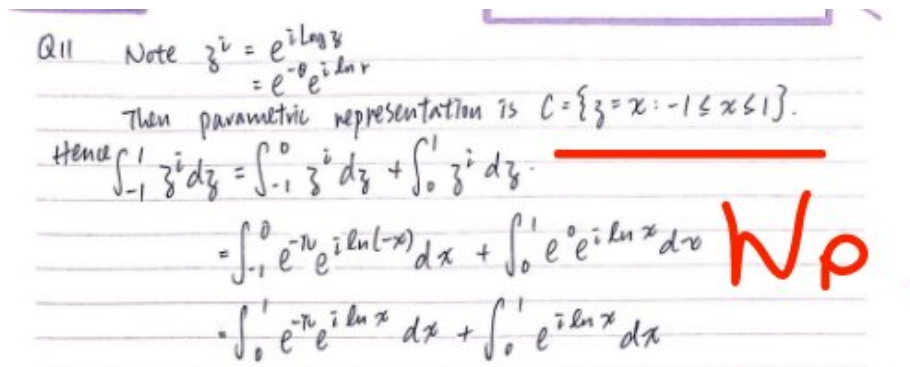 Q11 Note z^i = e^{i Log z}
= e^{-θ} e^{i ln r}
Then parametric representation is C = {z = x : -1 ≤ x ≤ 1}.
Hence ∫_{-1}^{1} z^i dz = ∫_{-1}^{0} z^i dz + ∫_{0}^{1} z^i dz.
= ∫_{-1}^{0} e^{-π} e^{i ln(-x)} dx + ∫_{0}^{1} e^0 e^{i ln x} dx
No
= ∫_{0}^{1} e^{-π} e^{i ln x} dx + ∫_{0}^{1} e^{i ln x} dx